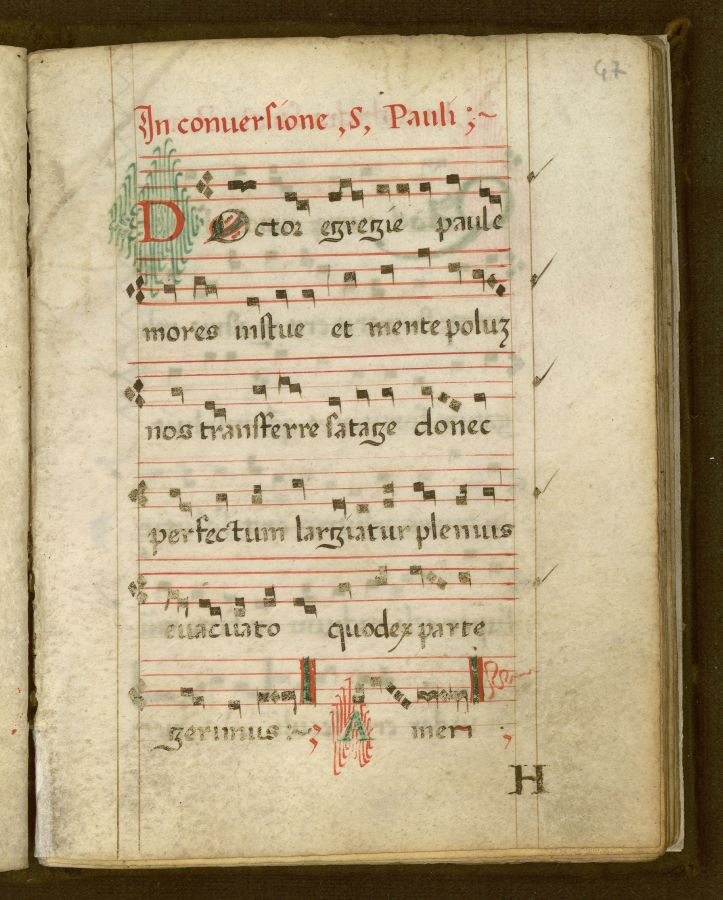 47
In conuersione ,S, Pauli ;~
DOctor egregie paule
mores instue et mente poluʒ
nos transferre satage donec
perfectum largiatur plenius
euacuato quodex parte
gerimus :~ ; Ameri ;
H